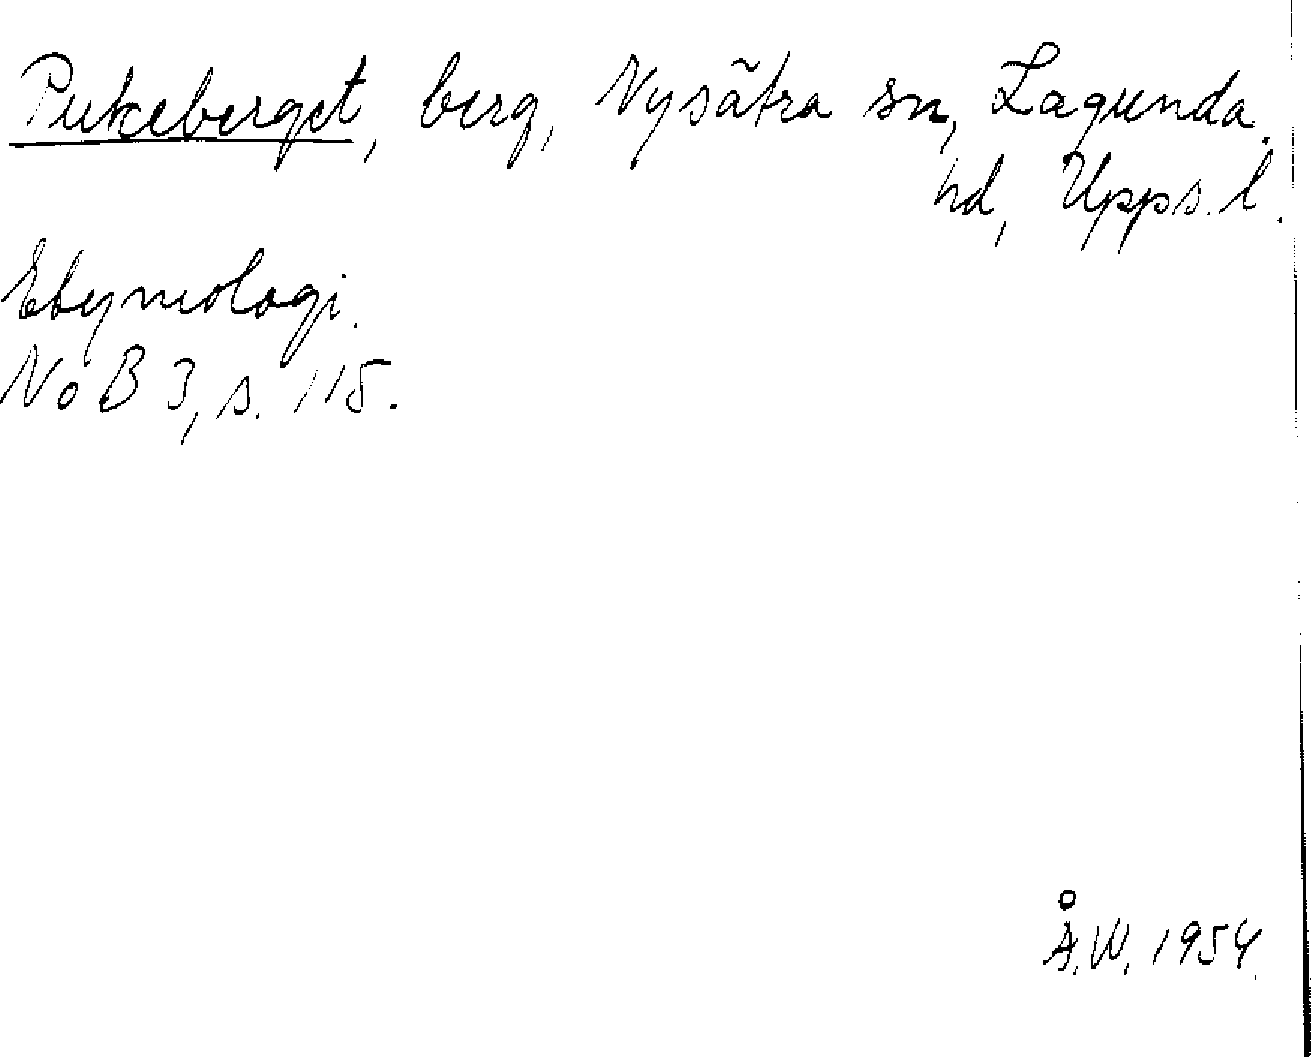 Pukeberget, berg, Nysätra sn, Lagunda
hd, Upps. l.
Etymologi.
NoB 3, s. 115.
Å.W. 1954.